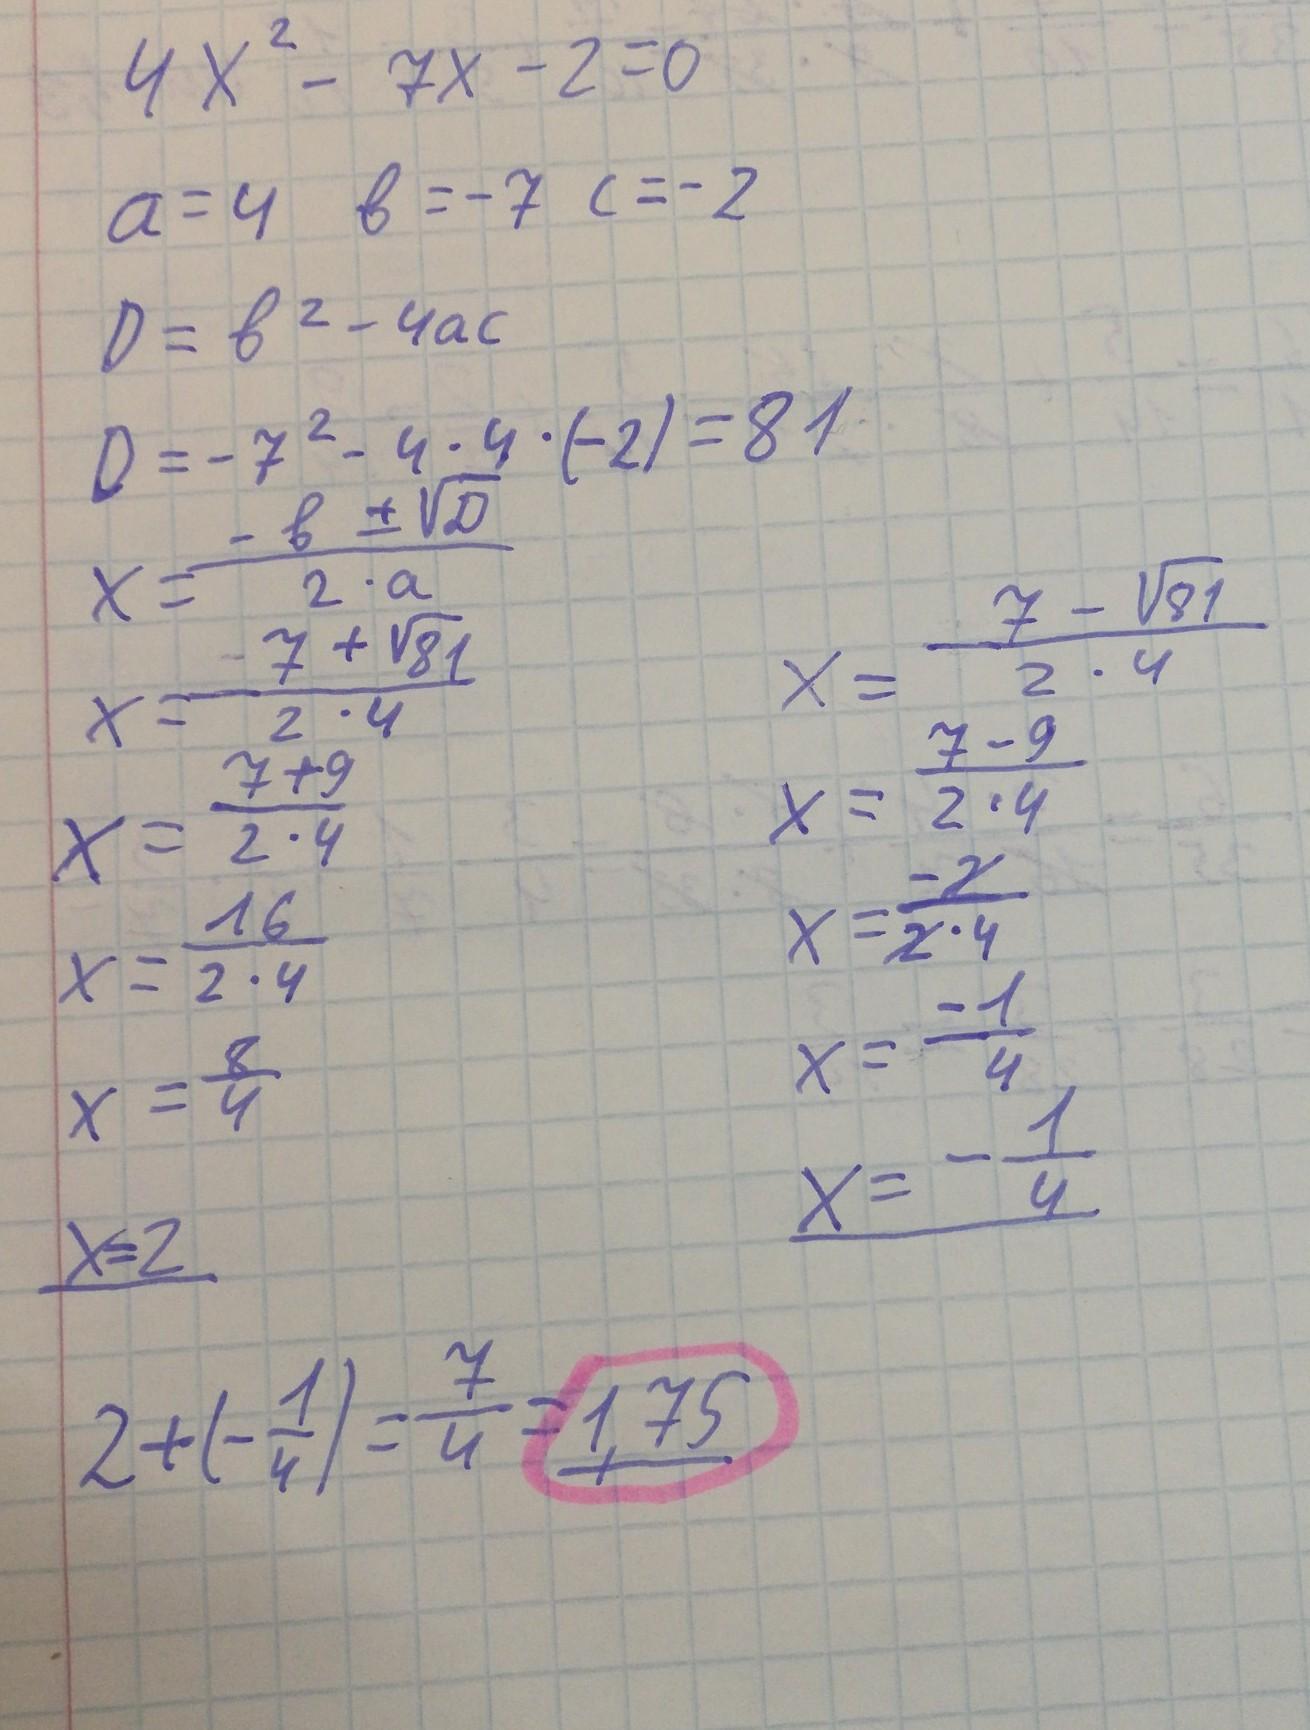 4x² - 7x - 2 = 0
a = 4  в = -7  c = -2
D = в² - 4ac
D = -7² - 4·4·(-2) = 81
x = (-в ± √D)/(2·a)
x = (-7 + √81)/(2·4)
x = (7+9)/(2·4)
x = 16/(2·4)
x = 8/4
x = 2
x = (7 - √81)/(2·4)
x = (7-9)/(2·4)
x = -2/(2·4)
x = -1/4
x = -1/4
2+(-1/4) = 7/4 = 1,75